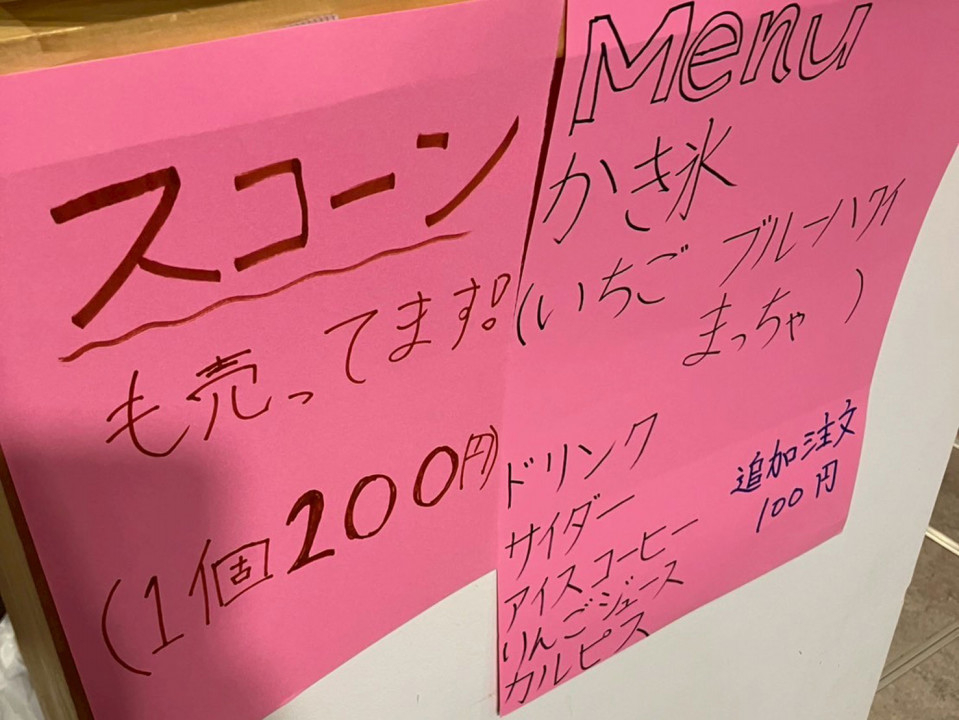 スコーン
も売ってます。
(1個200円)
Menu
かき氷
(いちご ブルーハワイ
まっちゃ )
ドリンク
サイダー
アイスコーヒー
りんごジュース
カルピス
追加注文
100円